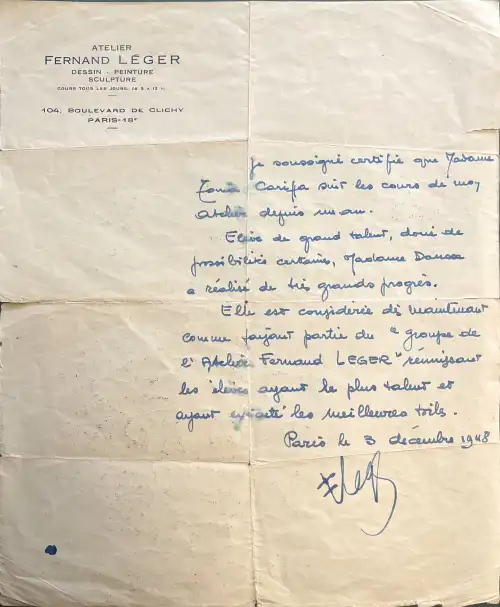 ATELIER
FERNAND LÉGER
DESSIN - PEINTURE
SCULPTURE
COURS TOUS LES JOURS, DE 9 A 12 H.
104, BOULEVARD DE CLICHY
PARIS-18e
Je soussigné certifie que Madame
Carifa suit les cours de mon
Atelier depuis un an.
Elève de grand talent, doué de
possibilités certaines, Madame
a réalisé de très grands progrès.
Elle est considérée dès maintenant
comme faisant partie du "groupe de
l'Atelier Fernand LEGER" réunissant
les élèves ayant le plus talent et
ayant les meilleures toiles.
Paris le 3 décembre 1948
FLeger